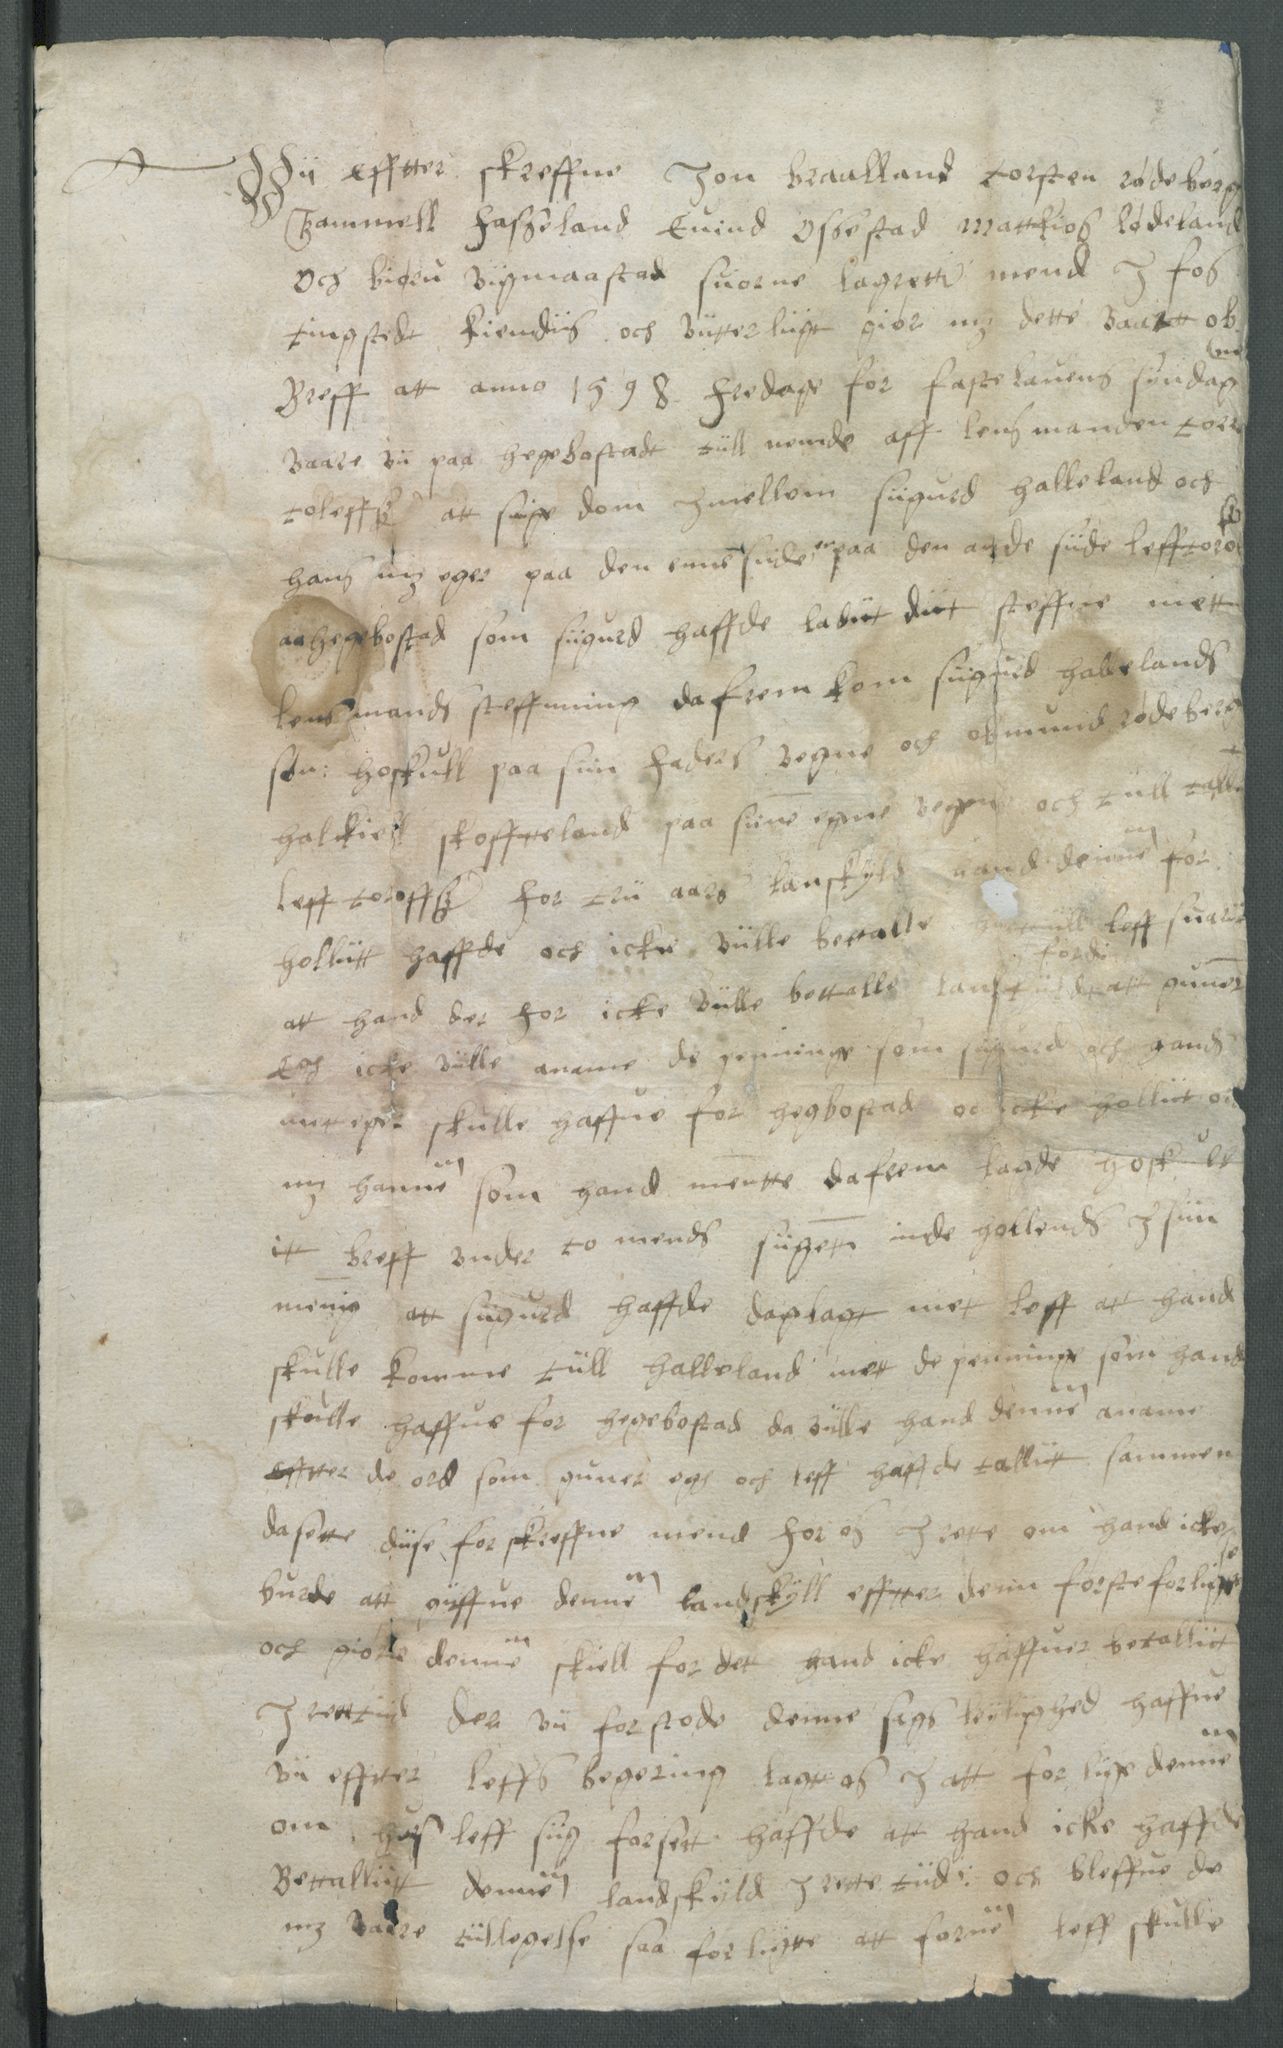 Wii efftter skreffne Jon braalland torsten rødeberg
Gammell hasseland Euind Ossestad Mattios lødeland
och biørn vigmaastad suorne lagrette mend J fos
tingstedt kiendis och vitterligt giør mz dette vaartt ob-
ne
Breff att anno 1598 fredage for fastelauens søndag
vaare vii paa hegebostadt till nemde aff lensmanden torre
toleffsz att siige dom Jmellom siigurd halleland och
hans mz eger paa den enne siide en paa den ande siide leff toro
aa hegebostad som siigurd haffde ladiit diit steffne mett
lensmands steffning da frem kom siigurd hallelands
søn: hoskull paa siin faders vegne och osmund rødeberg
halkiell skofftteland paa siine egne vegne och till talle
leff toroffsz for trii aars lanskyld hand dennem for
holliitt haffde och icke viille bettalle huartill leff suariit
att hand der for icke viille bettalle landskiild fordi att guner
Egs icke viille aname de penninge som siigurd och hands
met eger skulle haffue for hegbostad oc icke holliit or
mz hannem som hand mentte da frem lagde hoskull
itt breff vnder to mends siigett inde hollends J siin
mening att siigurd haffde daglagt met leff att hand
skulle komme till halleland mett de penninge som hand
skulle haffue for hegebostad da viille hand dennem aname
efftter de ord som guner egs och leff haffde talliit sammen
da sette diise forskreffne mend for os J rette om hand icke
burde att giiffue dennem landskyll efftter denn første forliige
lse
och giøre dennem skiell for dett hand icke haffuer betalliit
J rettiid der vii forstode denne sags leyliighed haffue
vii efftter leffs begering lagt os J att forliige dennem
om huis leff siig forsett haffde att hand icke haffde
Bettalliitt dennem landskyld J rette tiide: och bleffue de
mz vaare tiillegelse saa forliigte att fornem leff skulle